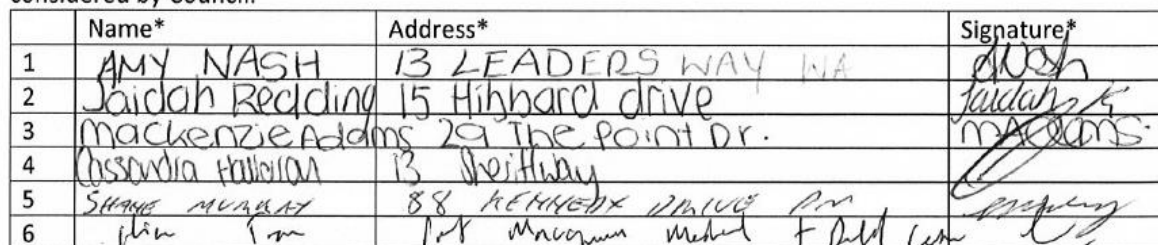 considered by Council.
Name* Address* Signature*
1 AMY NASH 13 LEADERS WAY WA ANash
2 Jaidah Redding 15 Hibbard drive Jaidah R
3 Mackenzie Addms 29 The Point Dr. MAddms
4 Cassandra Halloran 13
5 SHANE MURRAY 88 KENNEDY DRIVE PM
6 Port Macquarie